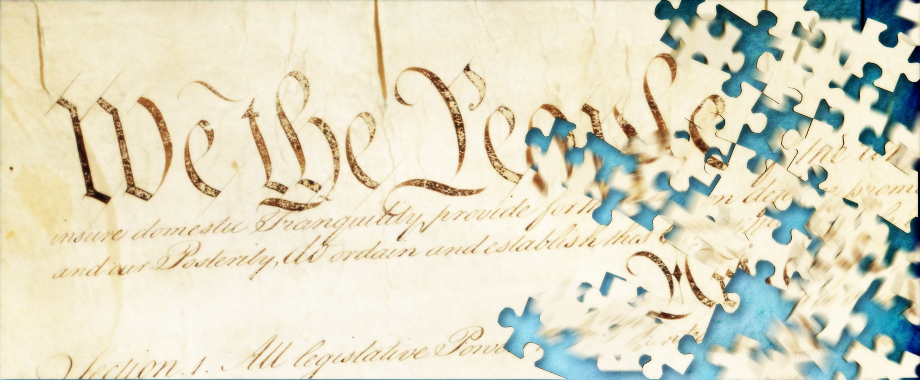 We the People
insure domestic Tranquility, provide for
and our Posterity, do ordain and establish this
Section. 1. All legislative Powe